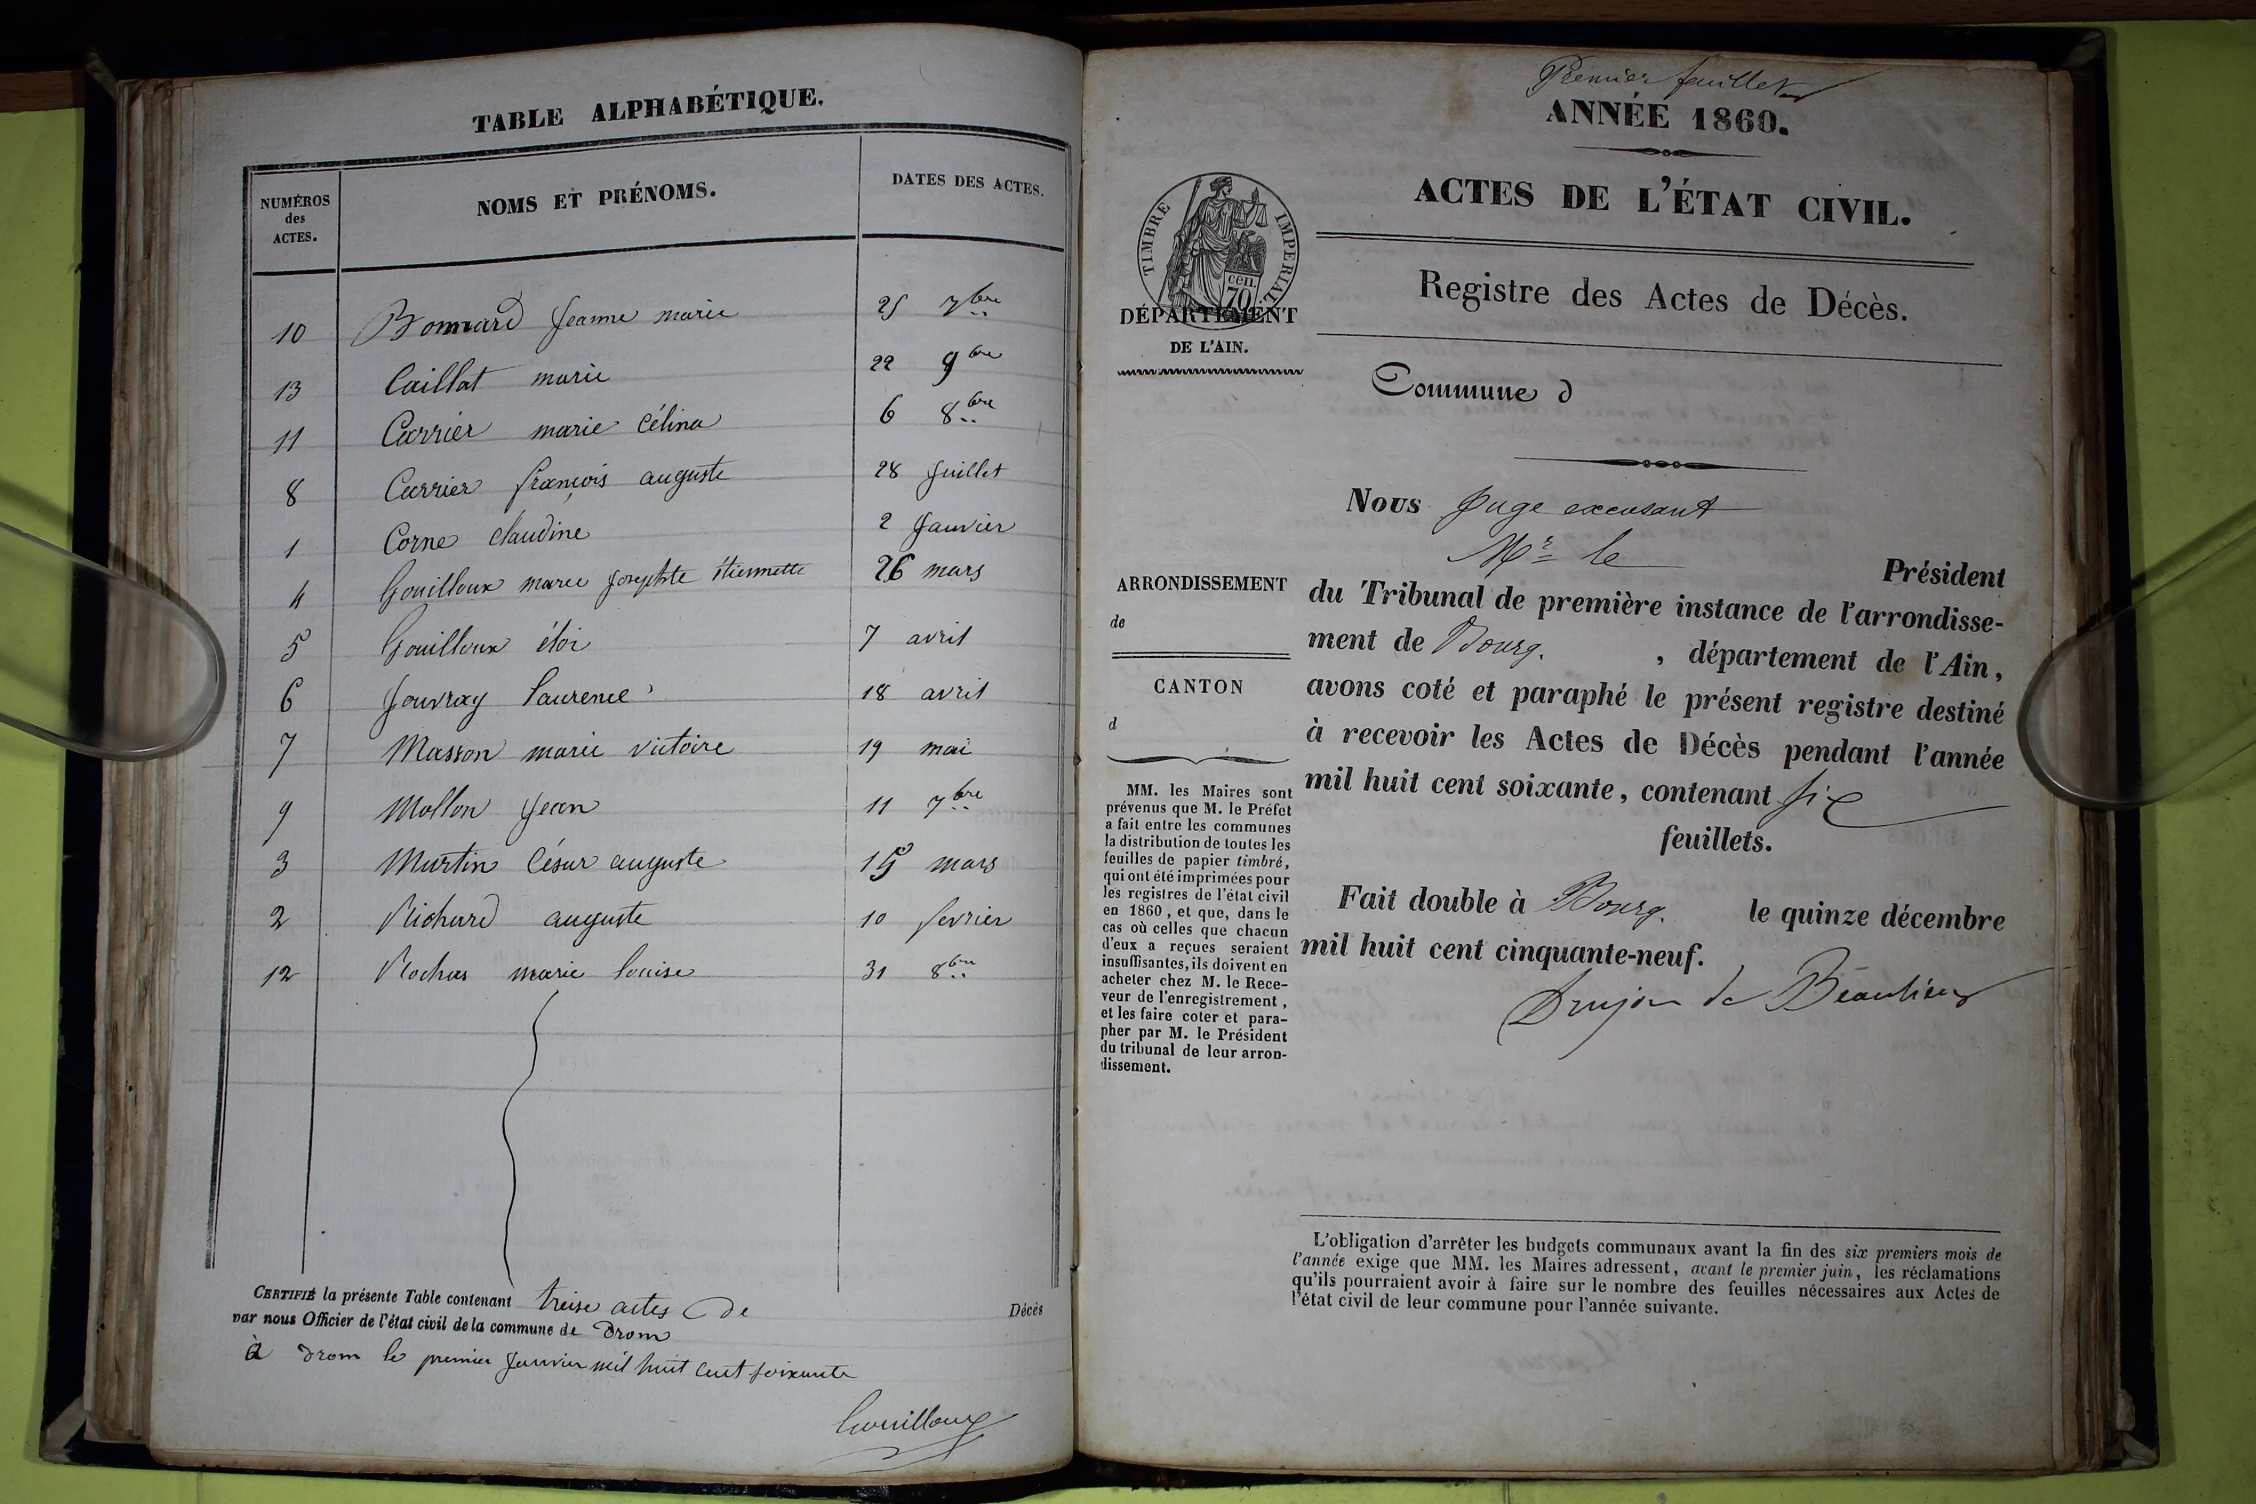 TABLE ALPHABÉTIQUE.
NUMÉROS
des
ACTES.
NOMS ET PRÉNOMS.
DATES DES ACTES.
10 Bonnard Jeanne marie 25 7bre
13 Caillat marie 22 9bre
11 Carrier marie Célina 6 8bre
8 Carrier françois auguste 28 Juillet
1 Corne Claudine 2 Janvier
4 Gouilloux marie Josephte étiennette 26 mars
5 Gouilloux éloi 7 avril
6 Jouvray Laurence 18 avril
7 Masson marie victoire 19 mai
9 Mollon Jean 11 7bre
3 Martin César auguste 15 mars
2 Richard auguste 10 fevrier
12 Rochas marie Louise 31 8bre
CERTIFIÉ la présente Table contenant treise actes de Décès
par nous Officier de l'état civil de la commune de Drom
à Drom le premier Janvier mil huit cent soixante
Gouilloux
Premier feuillet
ANNÉE 1860.
ACTES DE L'ÉTAT CIVIL.
TIMBRE IMPERIAL
CEN.
70
DÉPARTEMENT
DE L'AIN.
Registre des Actes de Décès.
Commune d
Nous Juge excusant
Mr le Président
du Tribunal de première instance de l'arrondisse-
ment de Bourg. , département de l'Ain,
avons coté et paraphé le présent registre destiné
à recevoir les Actes de Décès pendant l'année
mil huit cent soixante, contenant six
feuillets.
Fait double à Bourg. le quinze décembre
mil huit cent cinquante-neuf.
Drujon de Beaulieu
ARRONDISSEMENT
de
CANTON
d
MM. les Maires sont
prévenus que M. le Préfet
a fait entre les communes
la distribution de toutes les
feuilles de papier timbré,
qui ont été imprimées pour
les registres de l'état civil
en 1860, et que, dans le
cas où celles que chacun
d'eux a reçues seraient
insuffisantes, ils doivent en
acheter chez M. le Rece-
veur de l'enregistrement,
et les faire coter et para-
pher par M. le Président
du tribunal de leur arron-
dissement.
L'obligation d'arrêter les budgets communaux avant la fin des six premiers mois de
l'année exige que MM. les Maires adressent, avant le premier juin, les réclamations
qu'ils pourraient avoir à faire sur le nombre des feuilles nécessaires aux Actes de
l'état civil de leur commune pour l'année suivante.